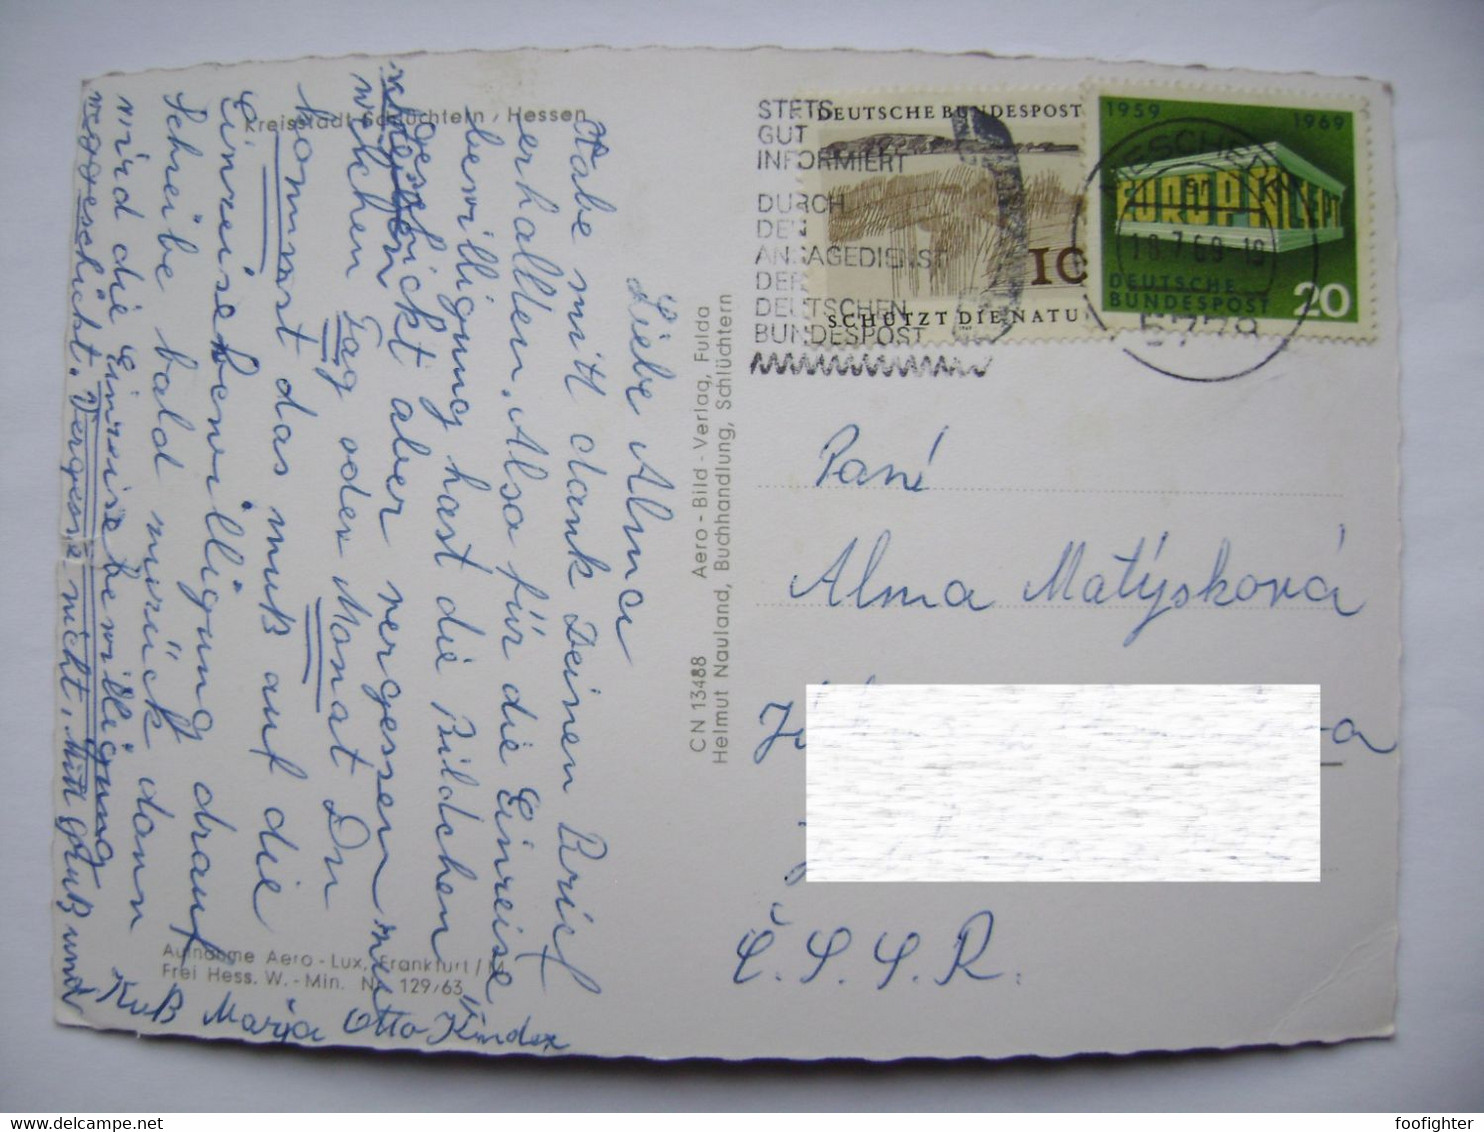 Kreisstadt Schlüchtern / Hessen
Liebe Alma
Habe mitt dank Deinen Brief
erhallten. Also für die Einreise
bewilligung hast die Bildchen
geschickt aber vergessen
welchen Tag oder Monat Du
kommst das muß auf die
Einreisebewilligung drauf
Schreibe bald mirück dann
wird die Einreisebewilligung
weggeschickt. Vergesse nicht, Mitt gruß und
Kuß Marja Otto Kinder
Aufnahme Aero - Lux, Frankfurt / M.
Frei Hess. W. - Min. Nr. 129/63
CN 13488 Aero - Bild - Verlag, Fulda
Helmut Nauland, Buchhandlung, Schlüchtern
STETS
GUT
INFORMIERT
DURCH
DEN
ANSAGEDIENST
DER
DEUTSCHEN
BUNDESPOST
DEUTSCHE BUNDESPOST
10
SCHÜTZT DIE NATU
1959 1969
EUROPA CEPT
18.7.69-19
DEUTSCHE
BUNDESPOST 20
Paní
Alma Matýsková
Č.S.S.R.
foofighter